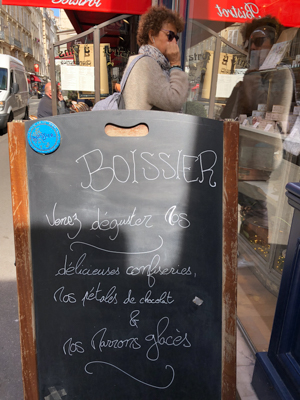 Bistrot
Bistrot
BOISSIER
Venez déguster Nos
délicieuses confiseries,
Nos pétales de chocolat
&
Nos Marrons glacés